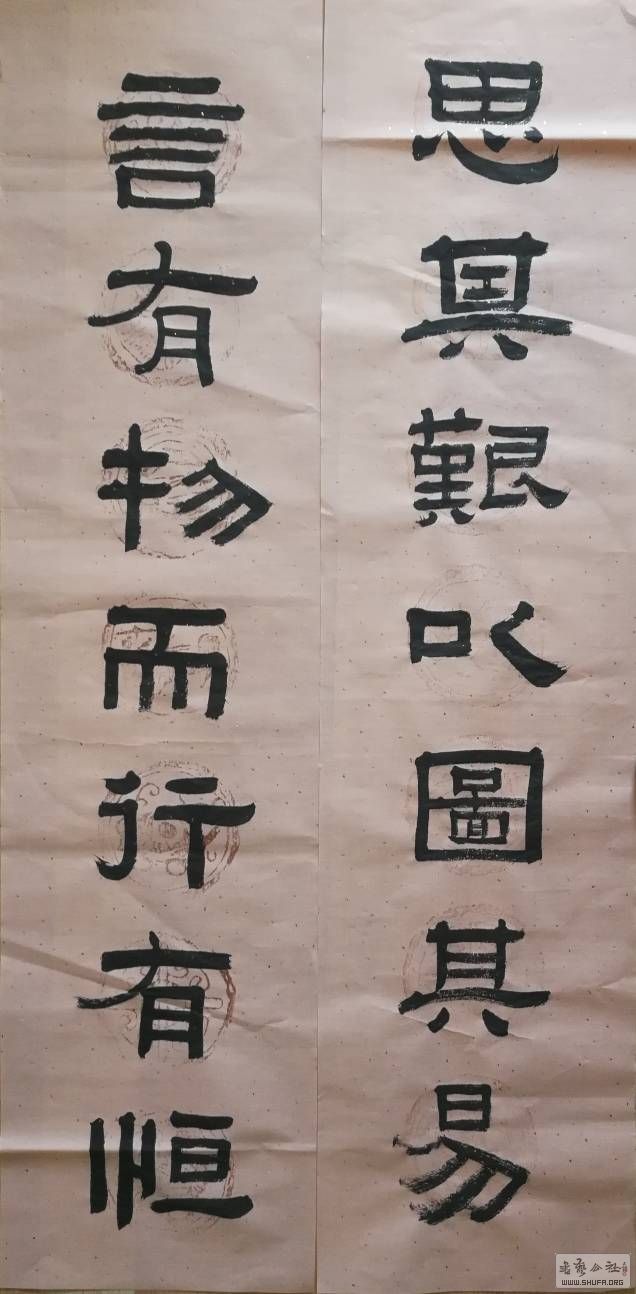 思其艱以圖其易
言有物而行有恒
书艺公社
WWW.SHUFA.ORG